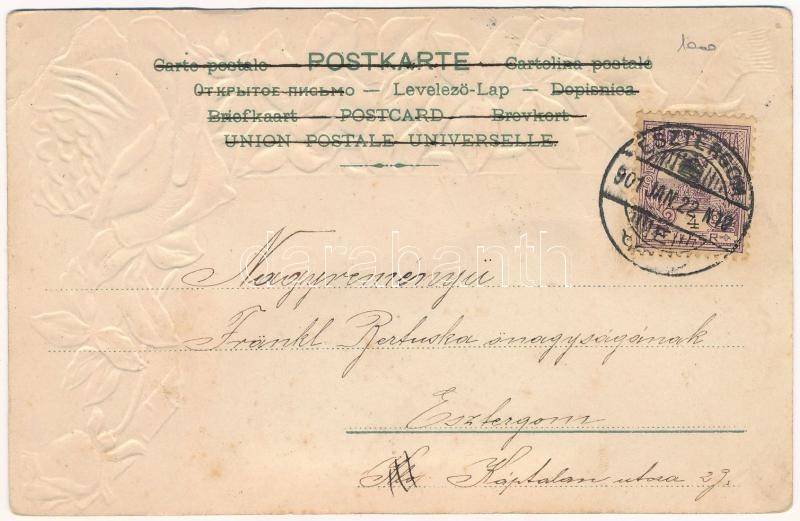 1000
Carte postale — POSTKARTE — Cartolina postale
Открытое письмо — Levelező-Lap — Dopisnica
Briefkaart — POSTCARD — Brevkort
UNION POSTALE UNIVERSELLE.
ESZTERGOM
901 JAN. 22
darabanth
Nagyreményü
Fränkl Bertuska önagyságának
Esztergom
Káptalan utcza 29.